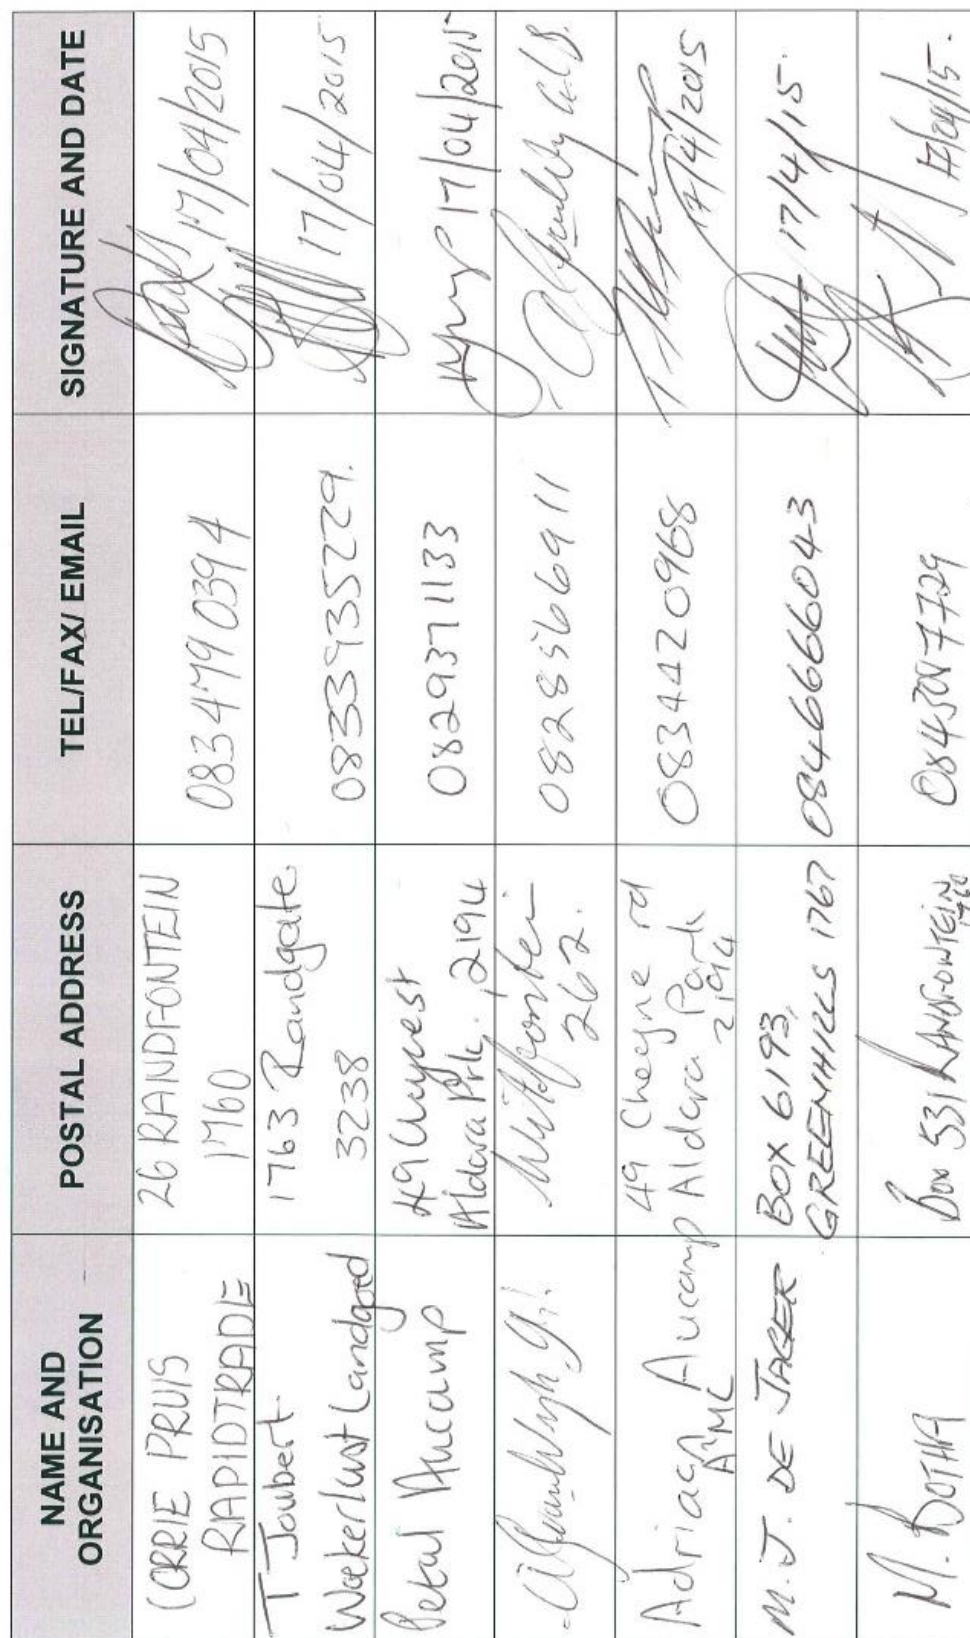 NAME AND
ORGANISATION
POSTAL ADDRESS
TEL/FAX/ EMAIL
SIGNATURE AND DATE
CORRIE PRUIS
RAPIDTRADE
26 RANDFONTEIN
1760
083 479 0394
17/04/2015
T Joubert
Wakerlust Landgoed
1763 Randgate.
3238
0833935229.
17/04/2015
Petal Aucamp
49
Aldara Prk, 2194
0829371133
17/04/2015
262.
0828566911
Adriaan Aucamp
AMC
49 Cheyne rd
Aldara Park
2194
0834420968
17/4/2015
M.J. DE JAGER
BOX 6193,
GREENHILLS 1767
0846666043
17/4/15.
M. BOTHA
Box 531 RANDFONTEIN
1760
17/04/15.